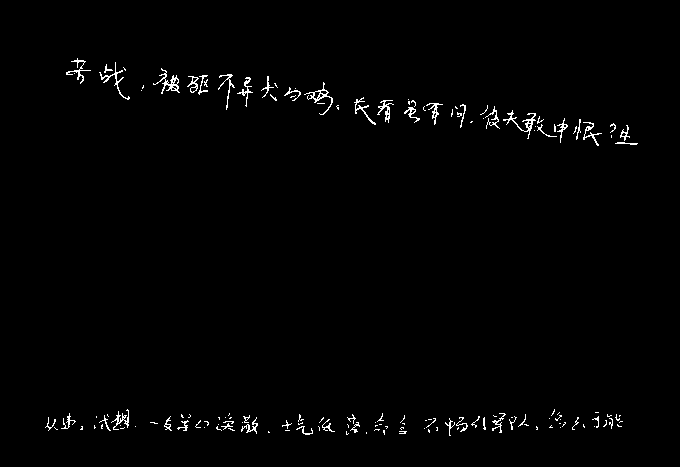 苦战，被驱不异犬与鸡。长者虽有问，役夫敢申恨？且
从史。试想，一支军心涣散、士气低落、命令不畅的军队，怎么可能